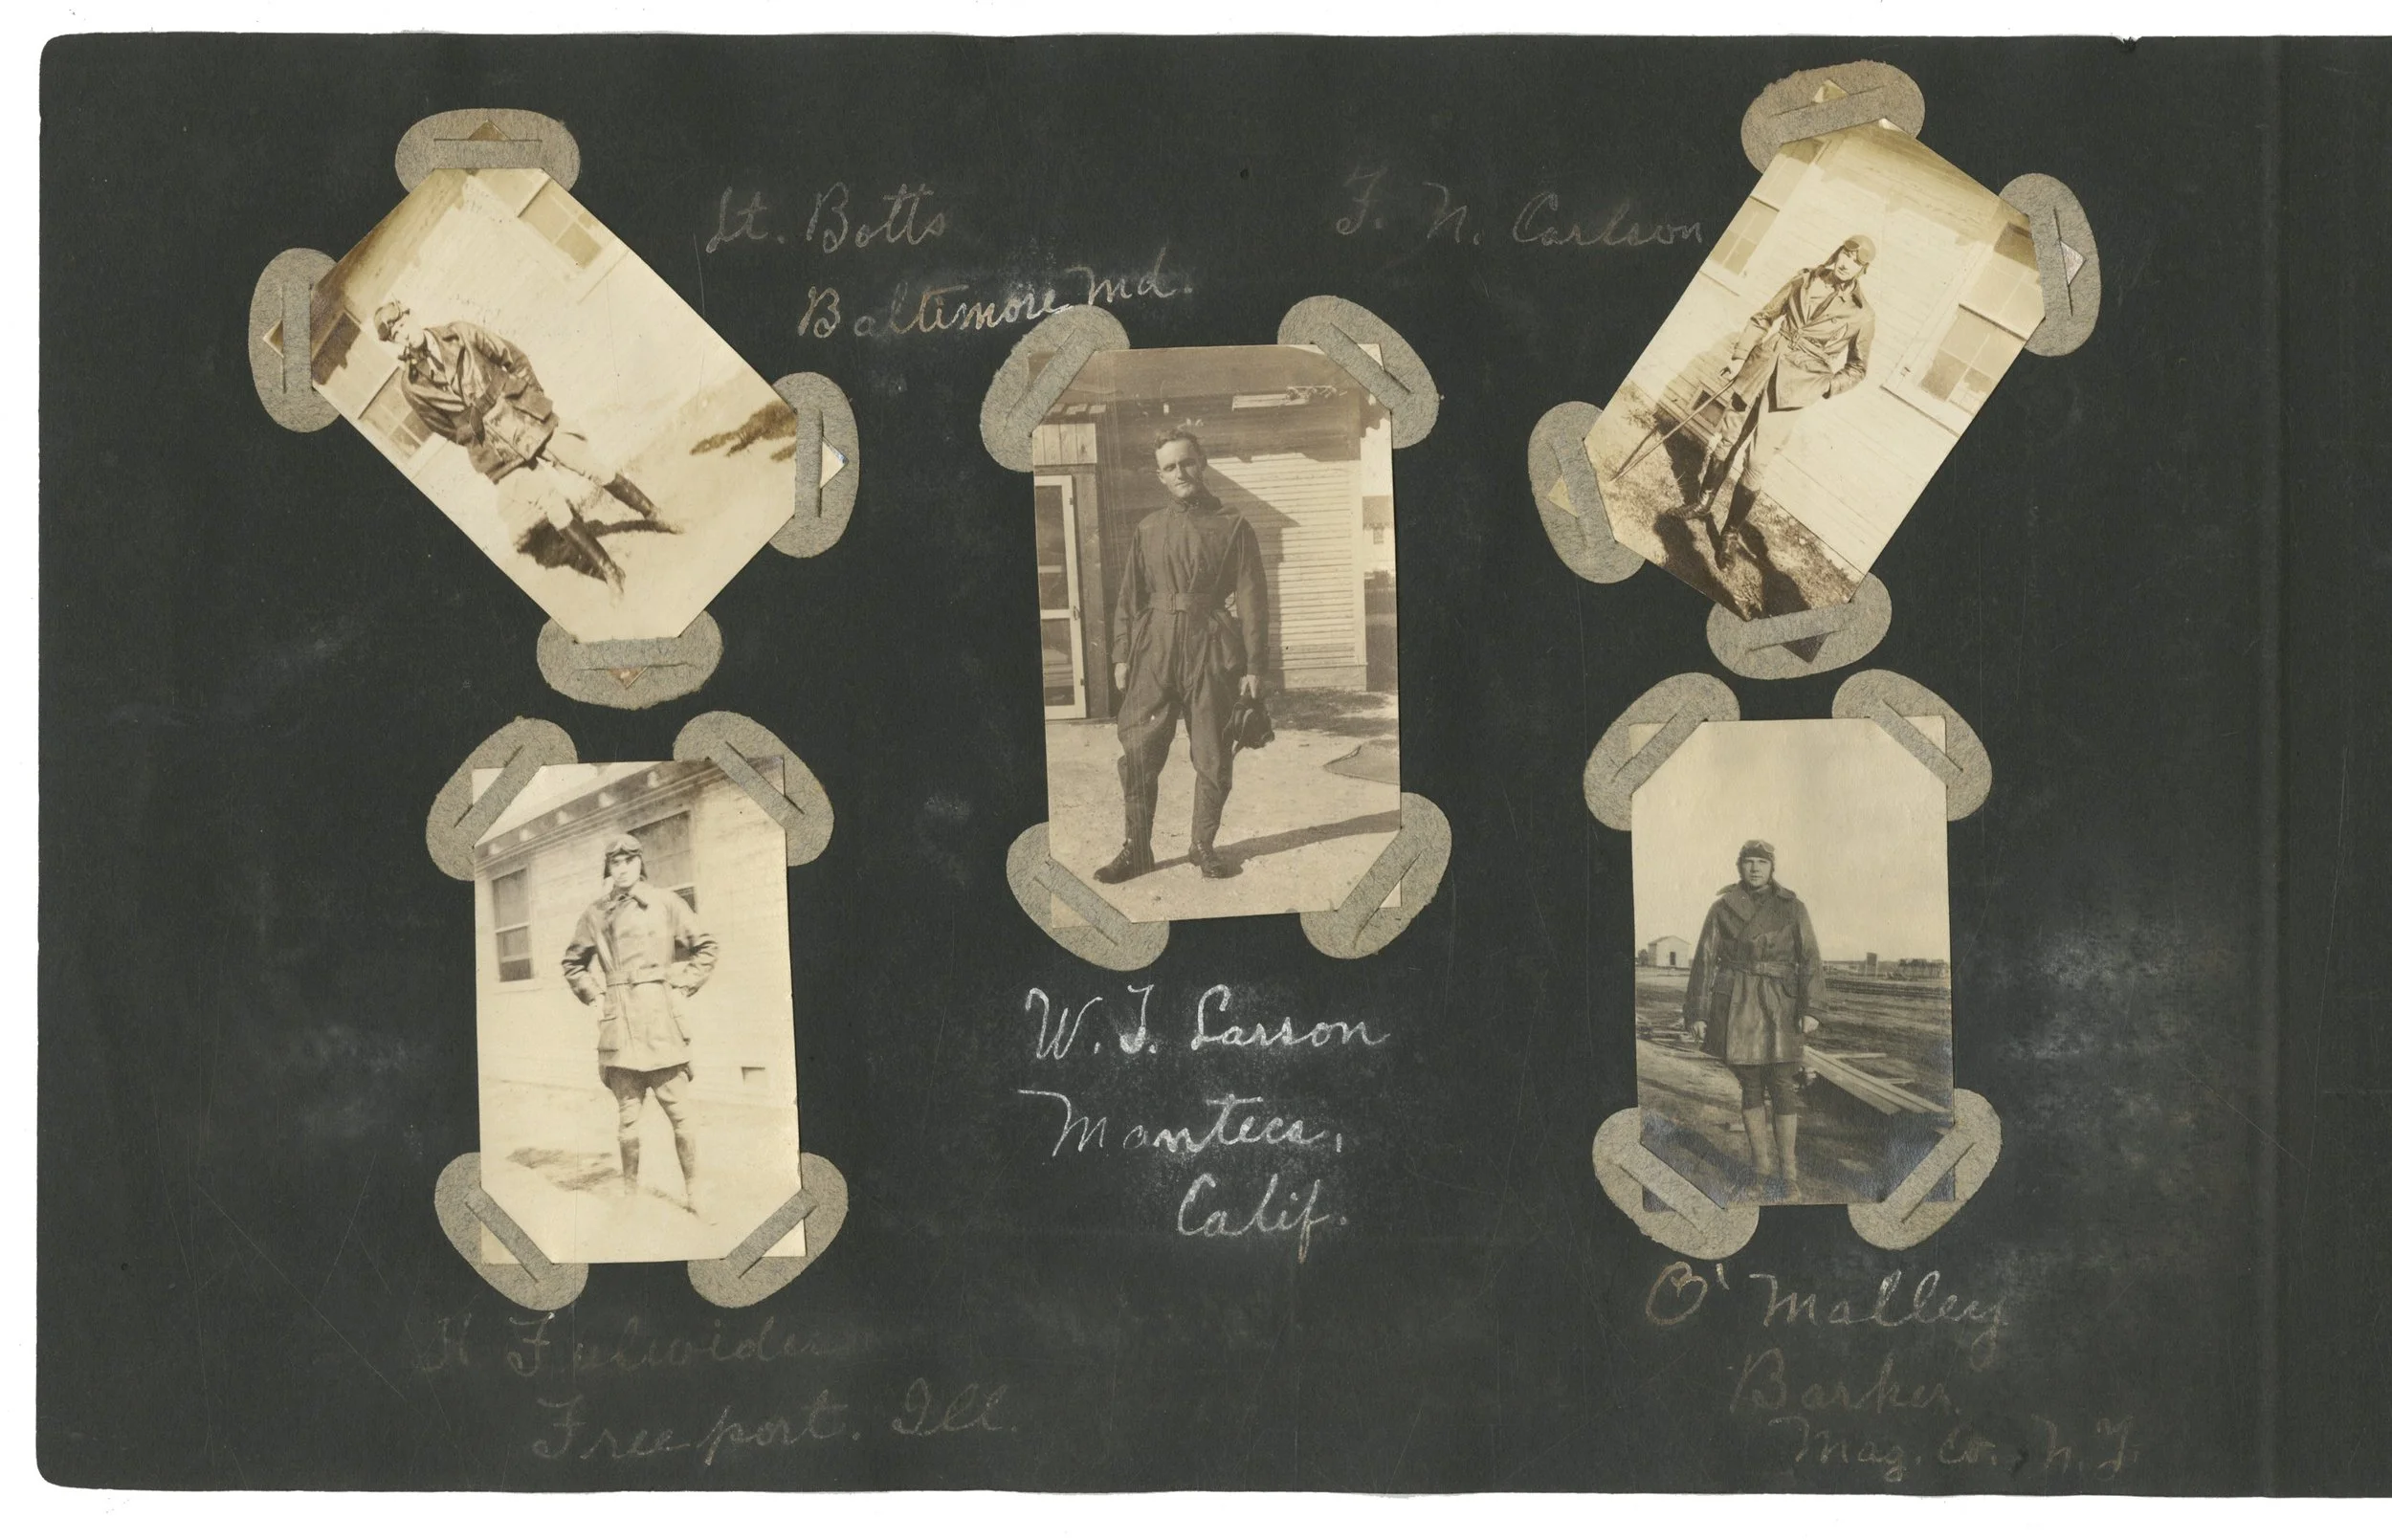 Lt. Botts
Baltimore Md.
F. N. Carlson
W. F. Larson
Manteca,
Calif.
H Fulwider
Freeport. Ill.
O' Malley
Barker
Mag. Co. N.Y.